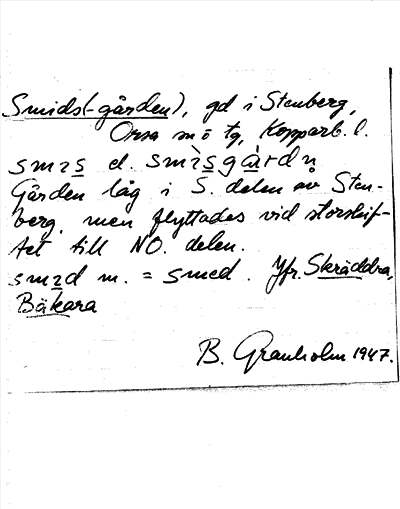 Smids(-gården), gd i Stenberg,
Orsa sn o tg, Kopparb. l.
smɪs el. smìsgàrdn̥
Gården låg i S. delen av Sten-
berg, men flyttades vid storskif-
tet till NO. delen.
smɪd m. = smed. Jfr. Skräddra,
Bäkara
B. Granholm 1947.